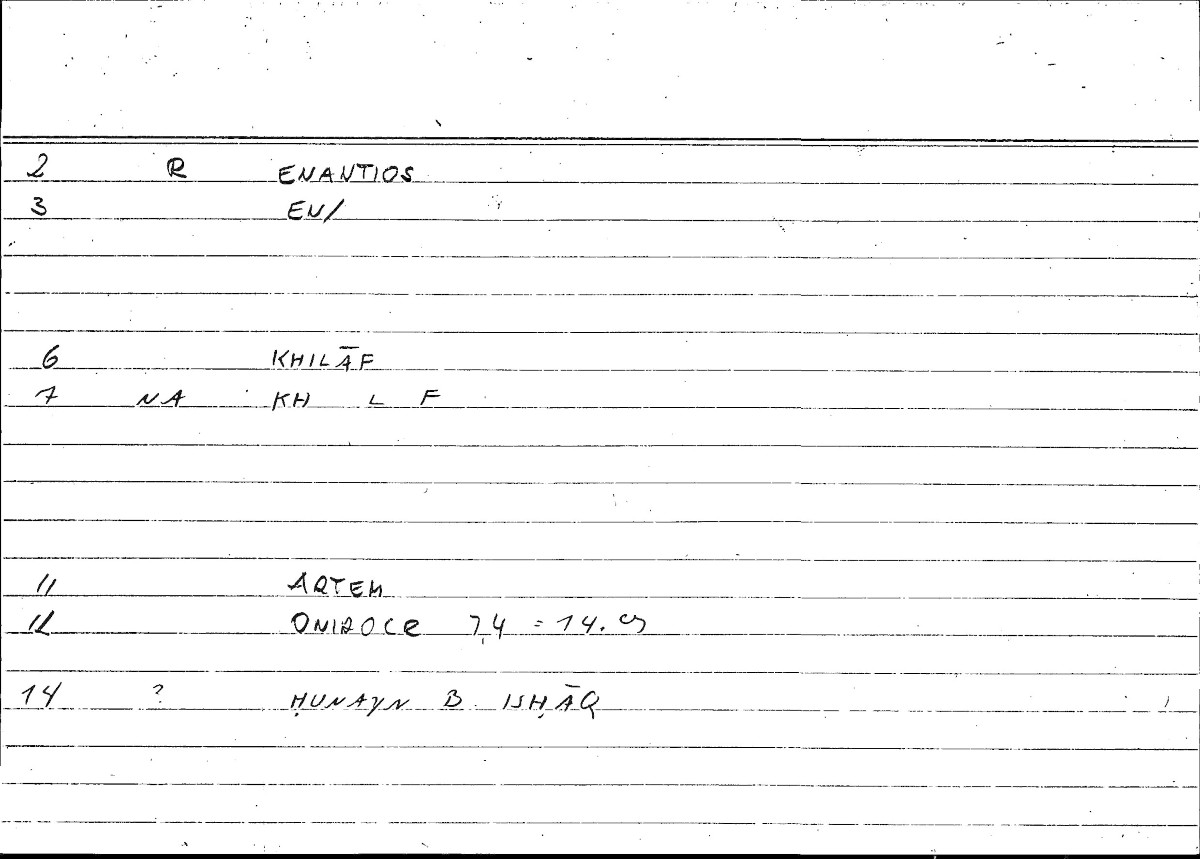 2 R ENANTIOS
3 EN/
6 KHILĀF
7 NA KH L F
11 ARTEM
12 ONIROCR 7,4 = 14.
14 ? ḤUNAYN B ISḤĀQ